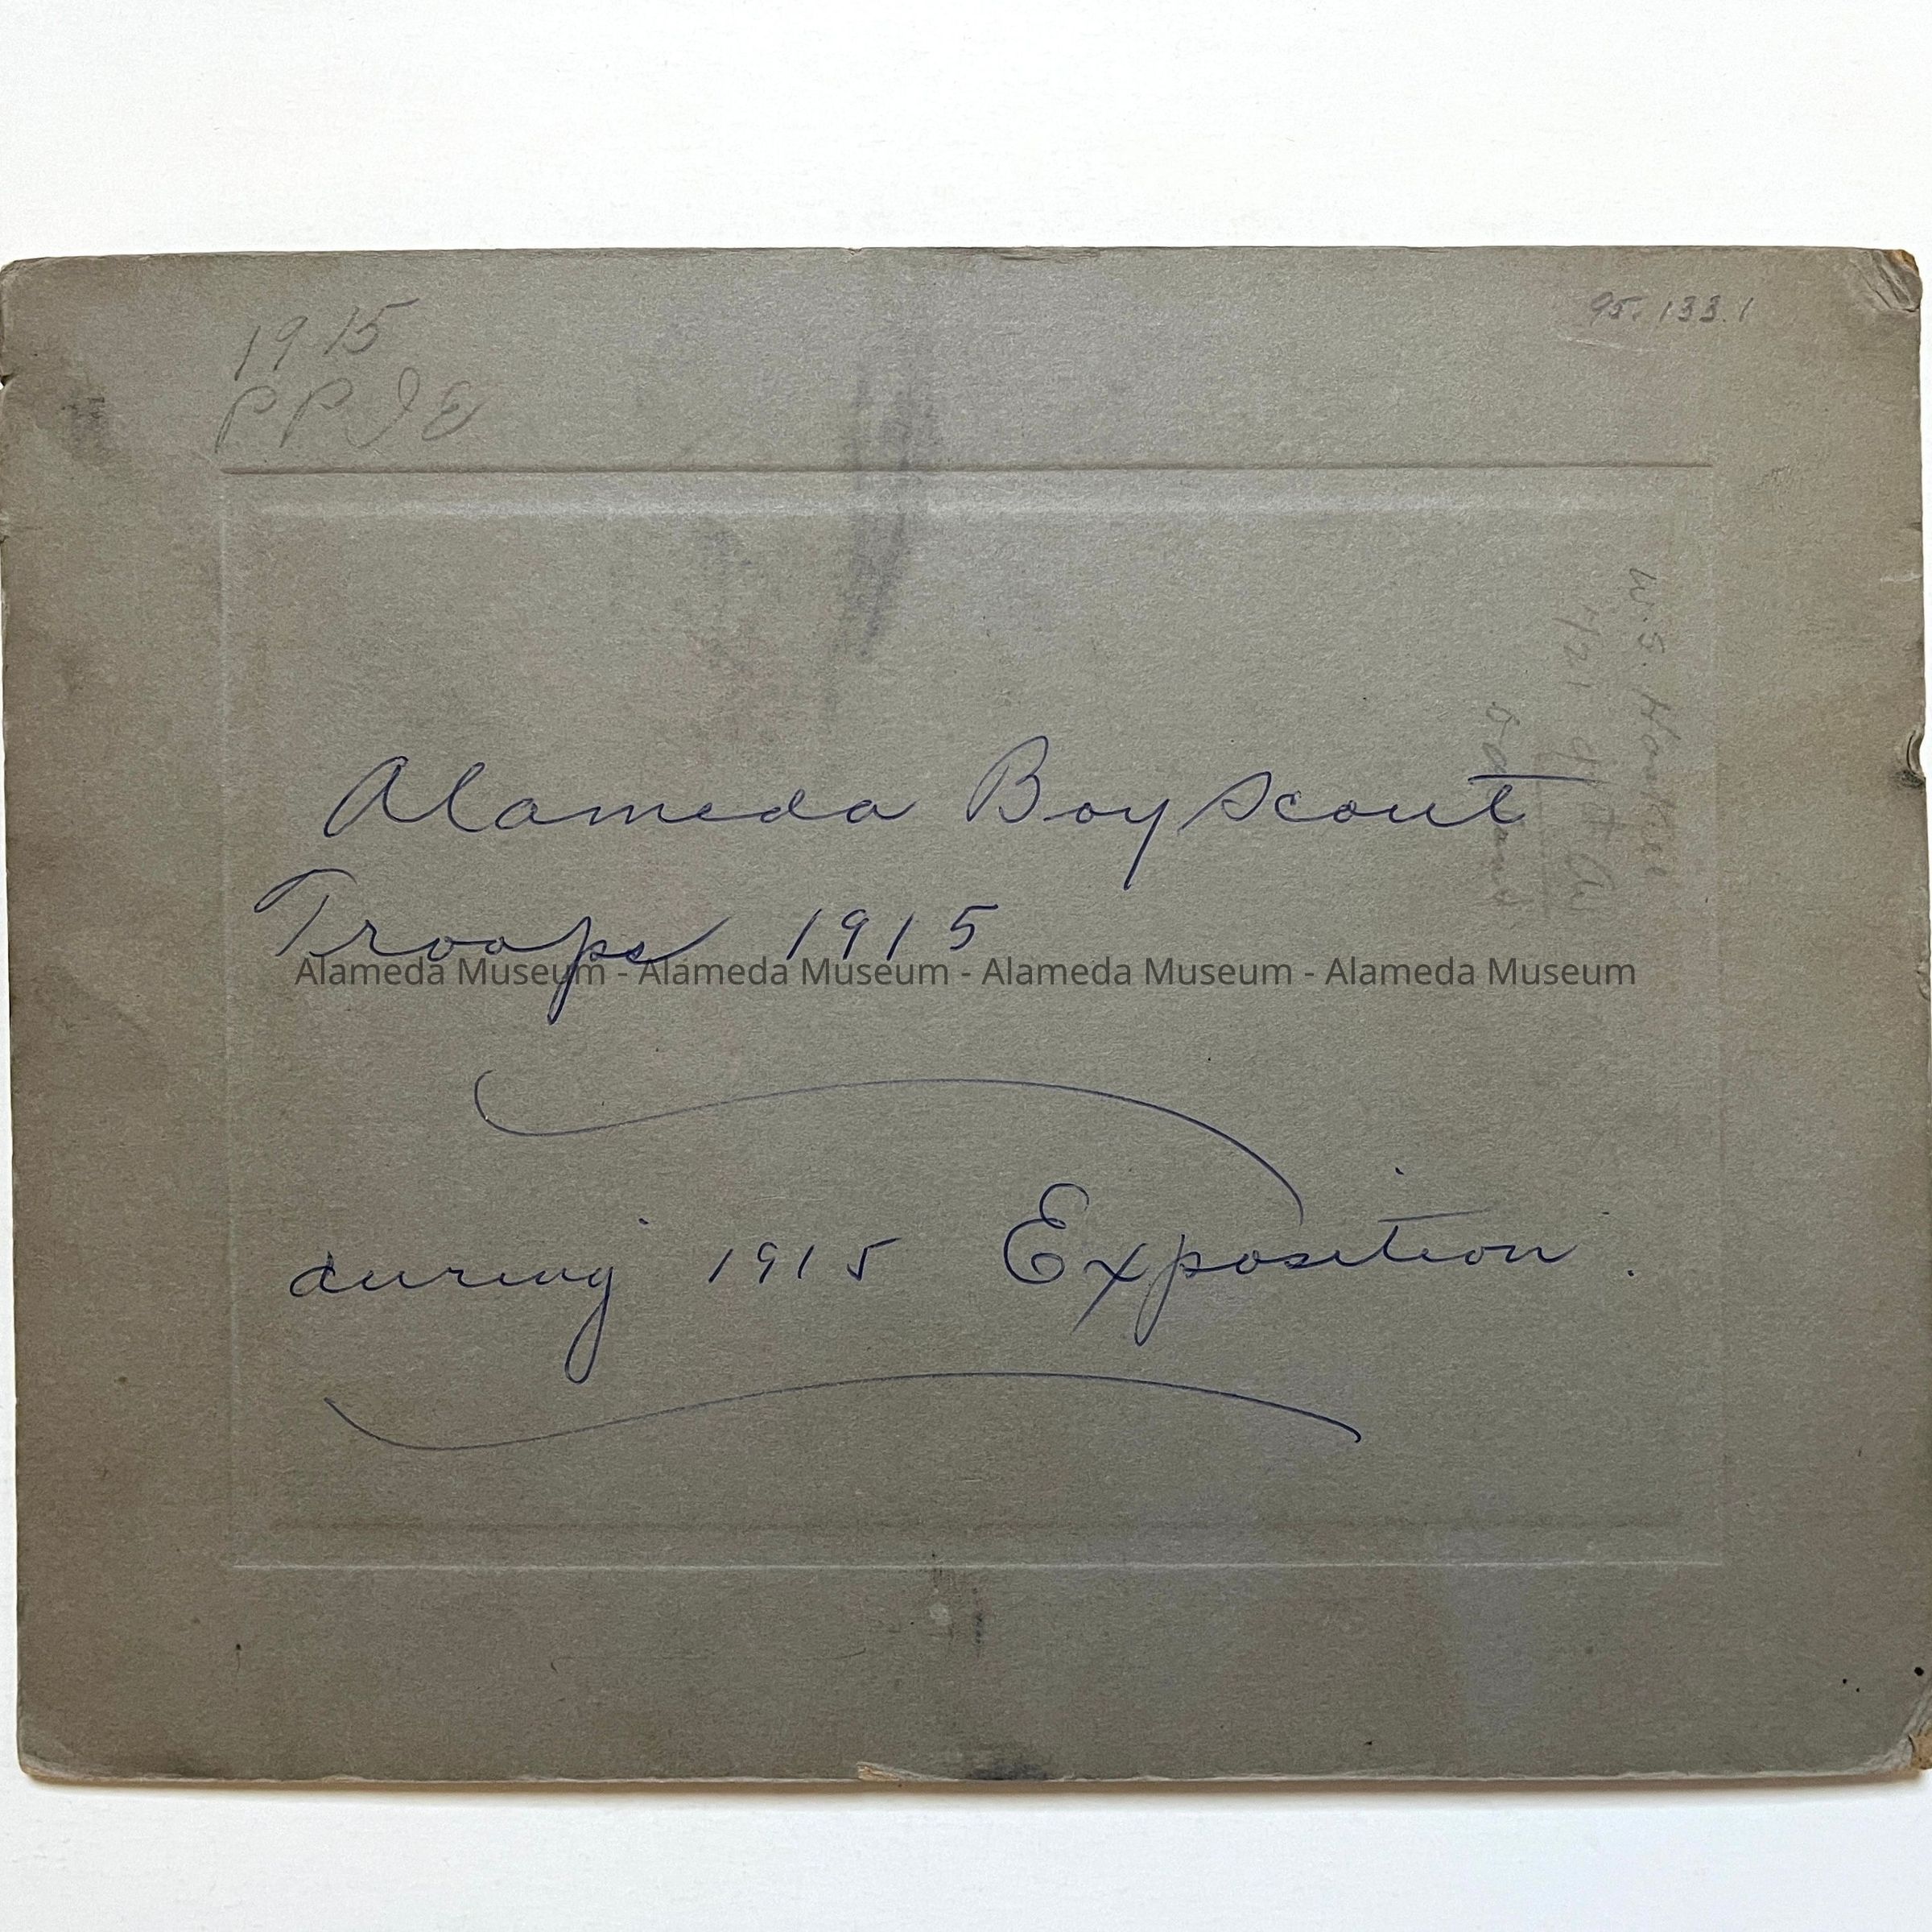 1915
PPIE
95.133.1
Alameda Boy Scout
Troops 1915
Alameda Museum - Alameda Museum - Alameda Museum - Alameda Museum
during 1915 Exposition.
W. S.